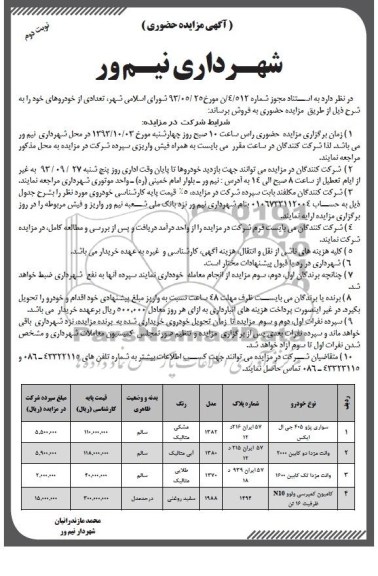 ( آگهی مزایده حضوری )
نوبت دوم
شهرداری نیم ور
در نظر دارد به استناد مجوز شماره ۵۱۲/۴/ن مورخ ۹۳/۰۵/۲۵ شورای اسلامی شهر، تعدادی از خودروهای خود را به
شرح ذیل از طریق مزایده حضوری به فروش برساند:
شرایط شرکت در مزایده:
۱) زمان برگزاری مزایده حضوری راس ساعت ۱۰ صبح روز چهارشنبه مورخ ۱۳۹۳/۱۰/۰۳ در محل شهرداری نیم ور
می باشد. لذا شرکت کنندگان در ساعت مقرر می بایست به همراه فیش واریزی سپرده شرکت در مزایده به محل مذکور
مراجعه نمایند.
۲) شرکت کنندگان در مزایده می توانند جهت بازدید خودروها تا پایان وقت اداری روز پنج شنبه ۹۳/۰۹/۲۷ به غیر
از ایام تعطیل از ساعت ۸ صبح الی ۱۴ به آدرس : نیم ور - بلوار امام خمینی (ره)-واحد موتوری شهرداری مراجعه نمایند.
۳) شرکت کنندگان مکلفند بابت سپرده شرکت در مزایده ۵٪ قیمت پایه کارشناسی خودروی مورد نظر را بشرح جدول
ذیل به حساب بنام شهرداری نیم ور نزد بانک ملی شعبه نیم ور واریز و فیش مربوطه را در روز
برگزاری مزایده ارایه نمایند.
۴) شرکت کنندگان می بایست فرم شرکت در مزایده را از واحد درآمد دریافت و پس از بررسی و مطالعه کامل، در مزایده
شرکت نمایند.
۵) کلیه هزینه های ناشی از نقل و انتقال، هزینه آگهی، کارشناسی و غیره به عهده خریدار می باشد.
۶) شهرداری در رد یا قبول پیشنهادات مختار است.
۷) چنانچه برندگان اول، دوم، سوم مزایده از انجام معامله خودداری نمایند سپرده آنها به نفع شهرداری ضبط خواهد
شد.
۸) برنده یا برندگان می بایست ظرف مهلت ۴۸ ساعت نسبت به واریز مبلغ پیشنهادی خود اقدام و خودرو را تحویل
بگیرد. در غیر اینصورت پرداخت هزینه های انبارداری به ازای هر روز معادل ۵۰۰,۰۰۰ ریال برعهده خریدار می باشد.
۹) سپرده نفرات اول، دوم و سوم مزایده تا زمان تحویل خودروی خریداری شده به برنده مزایده، نزد شهرداری باقی
خواهد ماند و سپرده نفرات بعدی پس از برگزاری مزایده و تنظیم صورتمجلس کمیسیون معاملات شهرداری و مشخص
شدن نفرات اول تا سوم آزاد خواهد شد.
۱۰) متقاضیان شرکت در مزایده می توانند جهت کسب اطلاعات بیشتر به شماره تلفن های ۴۳۳۲۲۱۱۵-۰۸۶ و
۴۳۳۲۳۱۱۵-۰۸۶ تماس حاصل نمایند.
ردیف | نوع خودرو | شماره پلاک | مدل | رنگ | بدنه و وضعیت ظاهری | قیمت پایه کارشناسی (ریال) | مبلغ سپرده شرکت در مزایده (ریال)
۱ | سواری پژو ۴۰۵ جی ال ایکس | ۵۷ ایران ۲۱۶د ۱۲ | ۱۳۸۲ | مشکی متالیک | سالم | ۱۱۰,۰۰۰,۰۰۰ | ۵,۵۰۰,۰۰۰
۲ | وانت مزدا دو کابین ۲۰۰۰ | ۵۷ ایران ۲۱۵ د ۱۲ | ۱۳۸۰ | آبی متالیک | سالم | ۱۱۸,۰۰۰,۰۰۰ | ۵,۹۰۰,۰۰۰
۳ | وانت مزدا تک کابین ۱۶۰۰ | ۵۷ ایران ۹۳۹ د ۱۸ | ۱۳۷۰ | طلایی متالیک | سالم | ۴۰,۰۰۰,۰۰۰ | ۲,۰۰۰,۰۰۰
۴ | کامیون کمپرسی ولوو N10 ظرفیت ۱۶ تن | ۱۳۹۴ | ۱۹۸۸ | سفید روغنی | درحدمعدل | ۳۰۰,۰۰۰,۰۰۰ | ۱۵,۰۰۰,۰۰۰
محمد مازندرانیان
شهردار نیم ور